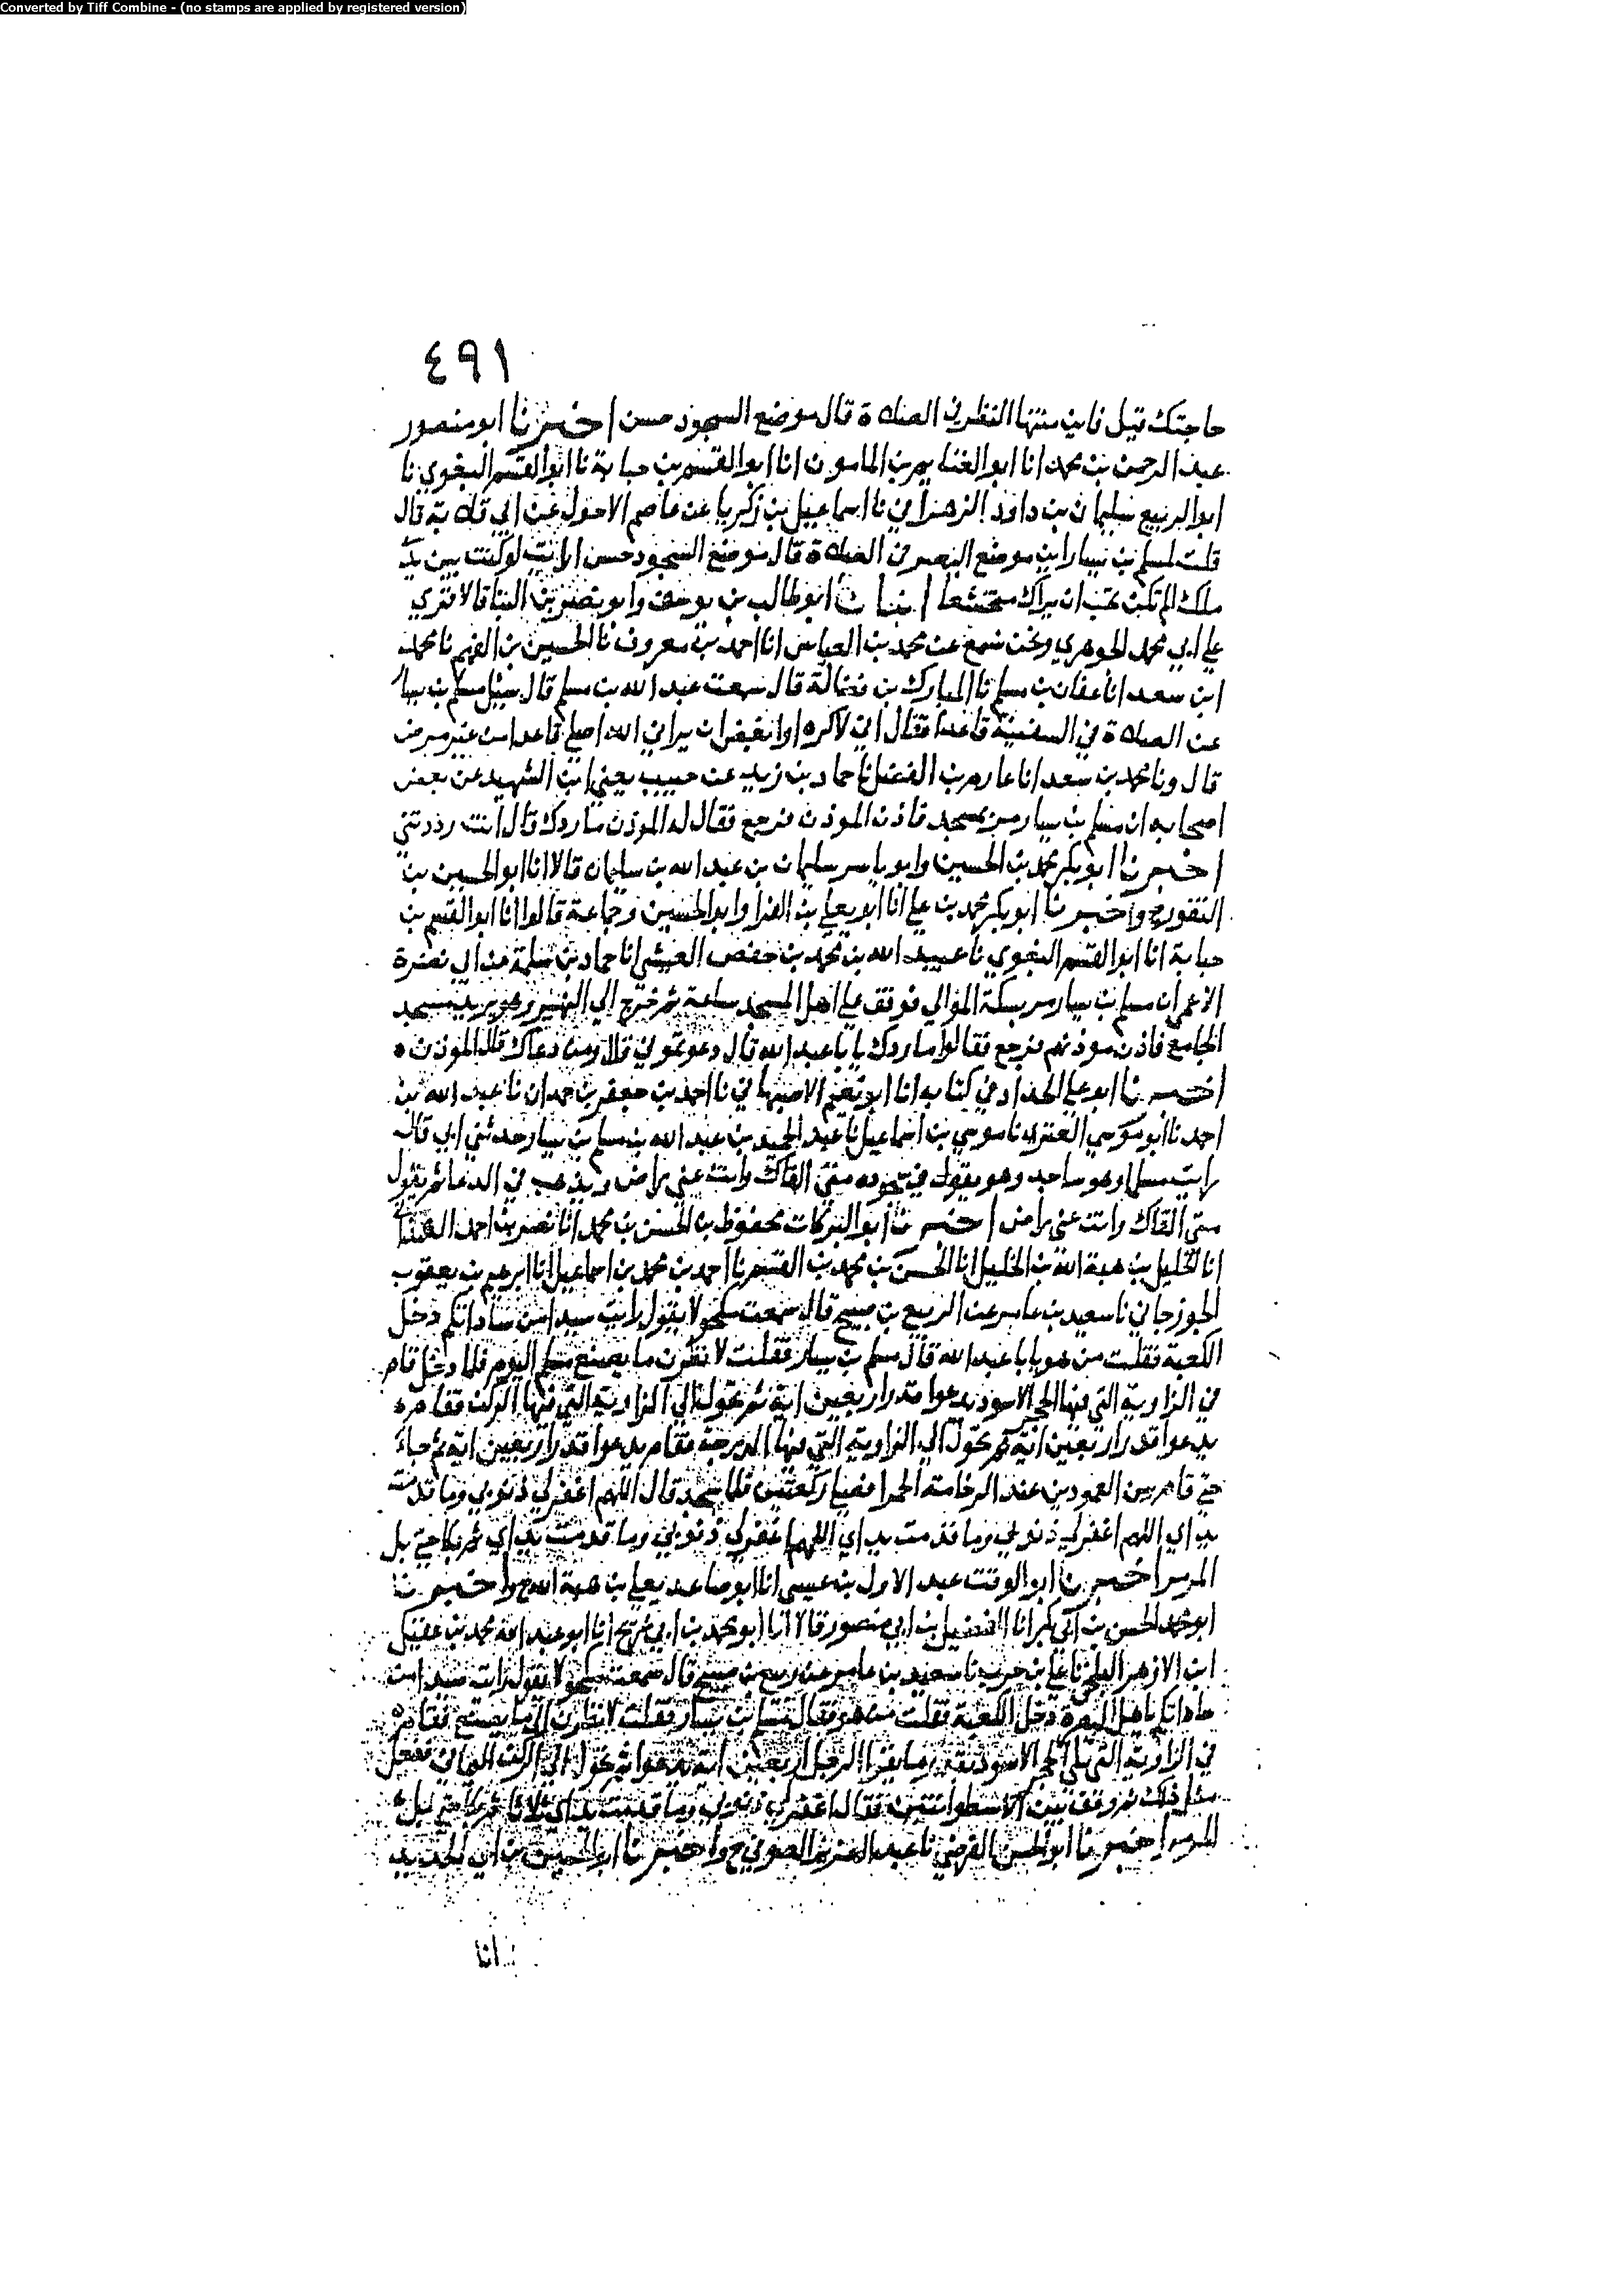 Converted by Tiff Combine - (no stamps are applied by registered version)
٤٩١
حاجتك قيل فاين منتها النظر في الصلاة قال موضع السجود حسن اخبرنا ابو منصور
عبد الرحمن بن محمد انا ابو الغنايم بن المامون انا ابو القسم بن حبابة نا ابو القسم البغوي نا
ابو الربيع سليمان بن داود الزهراني نا اسماعيل بن زكريا عن عاصم الاحول عن ابي قلابة قال
قلت لمسلم بن يسار اين موضع البصر من الصلاة قال موضع السجود حسن ارايت لو كنت بين يدي
ملك الم تكن تحب ان يراك متخشعا انبانا ابو طالب بن يوسف وابو نصر بن البنا قالا قري
علي ابي محمد الجوهري ونحن نسمع عن محمد بن العباس انا احمد بن معروف نا الحسين بن الفهم نا محمد
ابن سعد انا عفان بن مسلم نا المبارك بن فضالة قال سمعت عبد الله بن مسلم قال سئل مسلم بن يسار
عن الصلاة في السفينة قاعدا فقال اني لاكره او ابغض ان يراني الله اصلي قاعدا من غير مرض
قال ونا محمد بن سعد انا عارم بن الفضل نا حماد بن زيد عن حبيب يعني ابن الشهيد عن بعض
اصحابه ان مسلم بن يسار مر بمسجد فاذن الموذن فرجع فقال له الموذن ما ردك قال انت رددتني
اخبرنا ابو بكر محمد بن الحسين وابو ياسر سليمان بن عبد الله بن سليمان قالا انا ابو الحسين بن
النقور ح واخبرنا ابو بكر محمد بن علي انا ابو يعلي بن الفرا وابو الحسين وجماعة قالوا انا ابو القسم بن
حبابة انا ابو القسم البغوي نا عبيد الله بن محمد بن حفص العيشي انا حماد بن سلمة عن ابي نصرة
الاعمي ان مسلم بن يسار مر بسكة الموالي فوقف علي اهل المسجد ساعة ثم خرج الي وهو يريد مسجد
الجامع فاذن موذنهم فرجع فقالوا ما ردك يابا عبد الله قال دعوتموني قال ومن دعاك قال الموذن ه
اخبرنا ابو علي الحداد في كتابه انا ابو نعيم الاصبهاني نا احمد بن جعفر بن حمدان نا عبد الله بن
احمد نا ابو موسي العنزي نا موسي بن اسماعيل نا عبد الحميد بن عبد الله بن مسلم بن يسار حدثني ابي قال
رايت مسلما وهو ساجد وهو يقول في سجوده متي القاك وانت عني راض ويذهب في الدعا ثم يقول
متي القاك وانت عني راض اخبرنا ابو البركات محفوظ بن الحسن بن محمد انا نصر بن احمد
انا الخليل بن هبة الله بن الخليل انا الحسن بن محمد بن القسم نا احمد بن محمد بن اسماعيل انا ابرهيم بن يعقوب
الجوزجاني نا سعيد بن عامر عن الربيع بن صبيح قال سمعت مكحولا يقول رايت سيدا من ساداتكم دخل
الكعبة فقلت من هو يابا عبد الله قال مسلم بن يسار فقلت لانظرن ما يصنع مسلم اليوم فلما دخل قام
في الزاوية التي فيها الحجر الاسود يدعوا قدر اربعين اية ثم تحول الي الزاوية التي فيها الركن فقام ه
يدعوا قدر اربعين اية ثم تحول الي الزاوية التي فيها الدرجة فقام يدعوا قدر اربعين اية ثم جاء
حتي قام بين العمودين عند الرخامة الحمرا فصلي ركعتين فلما سجد قال اللهم اغفر لي ذنوبي وما قدمت
يداي اللهم اغفر لي ذنوبي وما قدمت يداي اللهم اغفر لي ذنوبي وما قدمت يداي ثم بكا حتي بل
المرمر اخبرنا ابو الوقت عبد الاول بن عيسي انا ابو صاعد يعلي بن هبة الله ح واخبرنا
ابو محمد الحسن بن ابي بكر انا الفضيل بن ابي منصور قالا انا ابو محمد بن ابي شريح انا ابو عبد الله محمد بن عقيل
ابن الازهر البلخي نا علي بن حرب نا سعيد بن عامر عن ربيع بن صبيح قال سمعت مكحولا يقول رايت سيدا من
ساداتكم يا اهل البصرة دخل الكعبة فقلت من هو فقال مسلم بن يسار فقلت لانظرن الي ما يصنع فقام
في الزاوية التي تلي الحجر الاسود قدر ما يقرا الرجل اربعين اية يدعوا ثم تحول الي الركن اليماني ففعل
مثل ذلك ثم وقف بين الاسطوانتين فقال اغفر لي ذنوبي وما قدمت يداي ثلاثا ثم بكا حتي بل
المرمر اخبرنا ابو الحسن الفرضي نا عبد العزيز الصوفي ح واخبرنا ابو الحسين بن ابي الحديد
انا